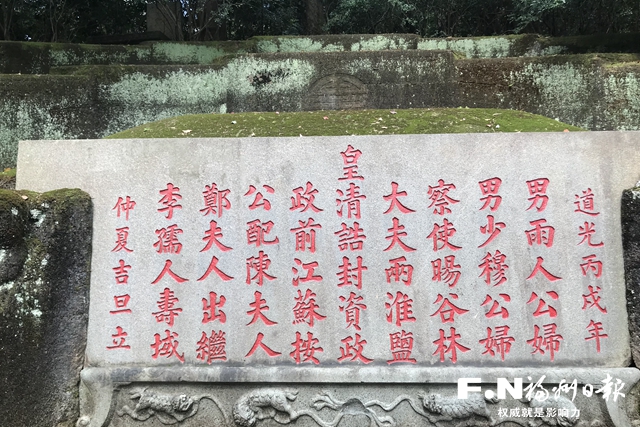 道光丙戌年
男雨人公婦
男少穆公婦
察使暘谷林
大夫兩淮鹽
皇清誥封資政
政前江蘇按
公配陳夫人
鄭夫人出繼
李孺人壽域
仲夏吉旦立
F.N 福州日報
权威就是影响力